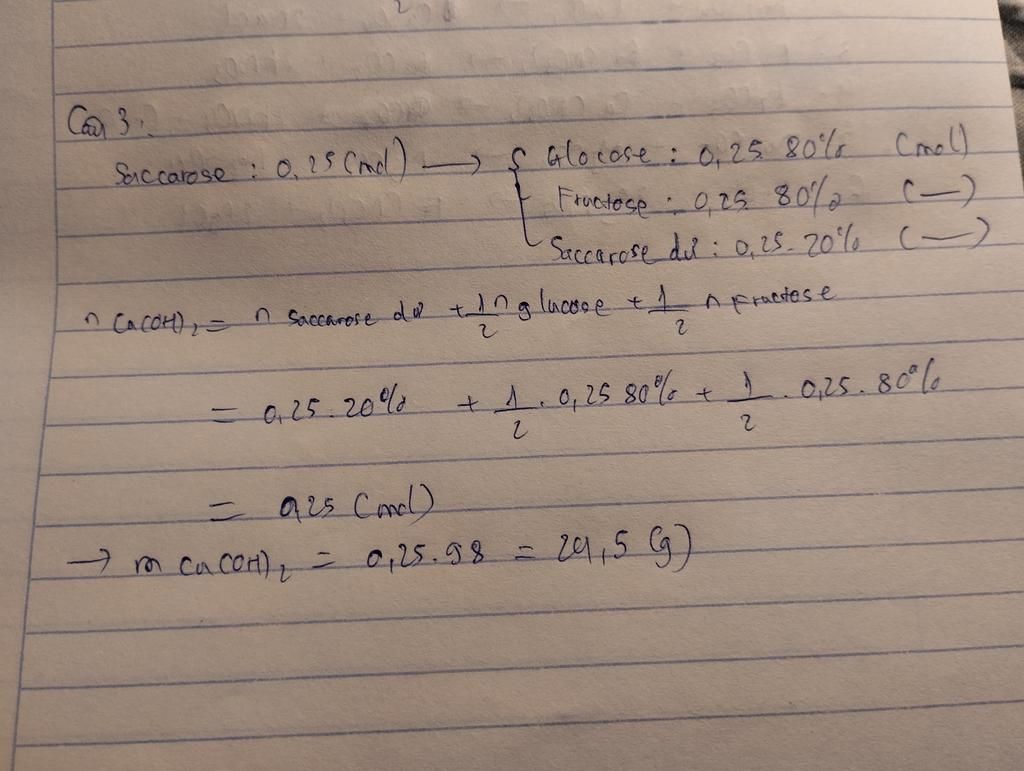 Câu 3:
Saccarose : 0,25 (mol) → { Glocose : 0,25 80% (mol)
Fructose : 0,25 80% (—)
Saccarose dư : 0,25.20% (—)
n Cu(OH)₂ = n saccarose dư + 1/2 n glucose + 1/2 n Fructose
= 0,25.20% + 1/2 . 0,25 80% + 1/2 . 0,25.80%
= 0,25 (mol)
→ m Cu(OH)₂ = 0,25.98 = 24,5 (g)